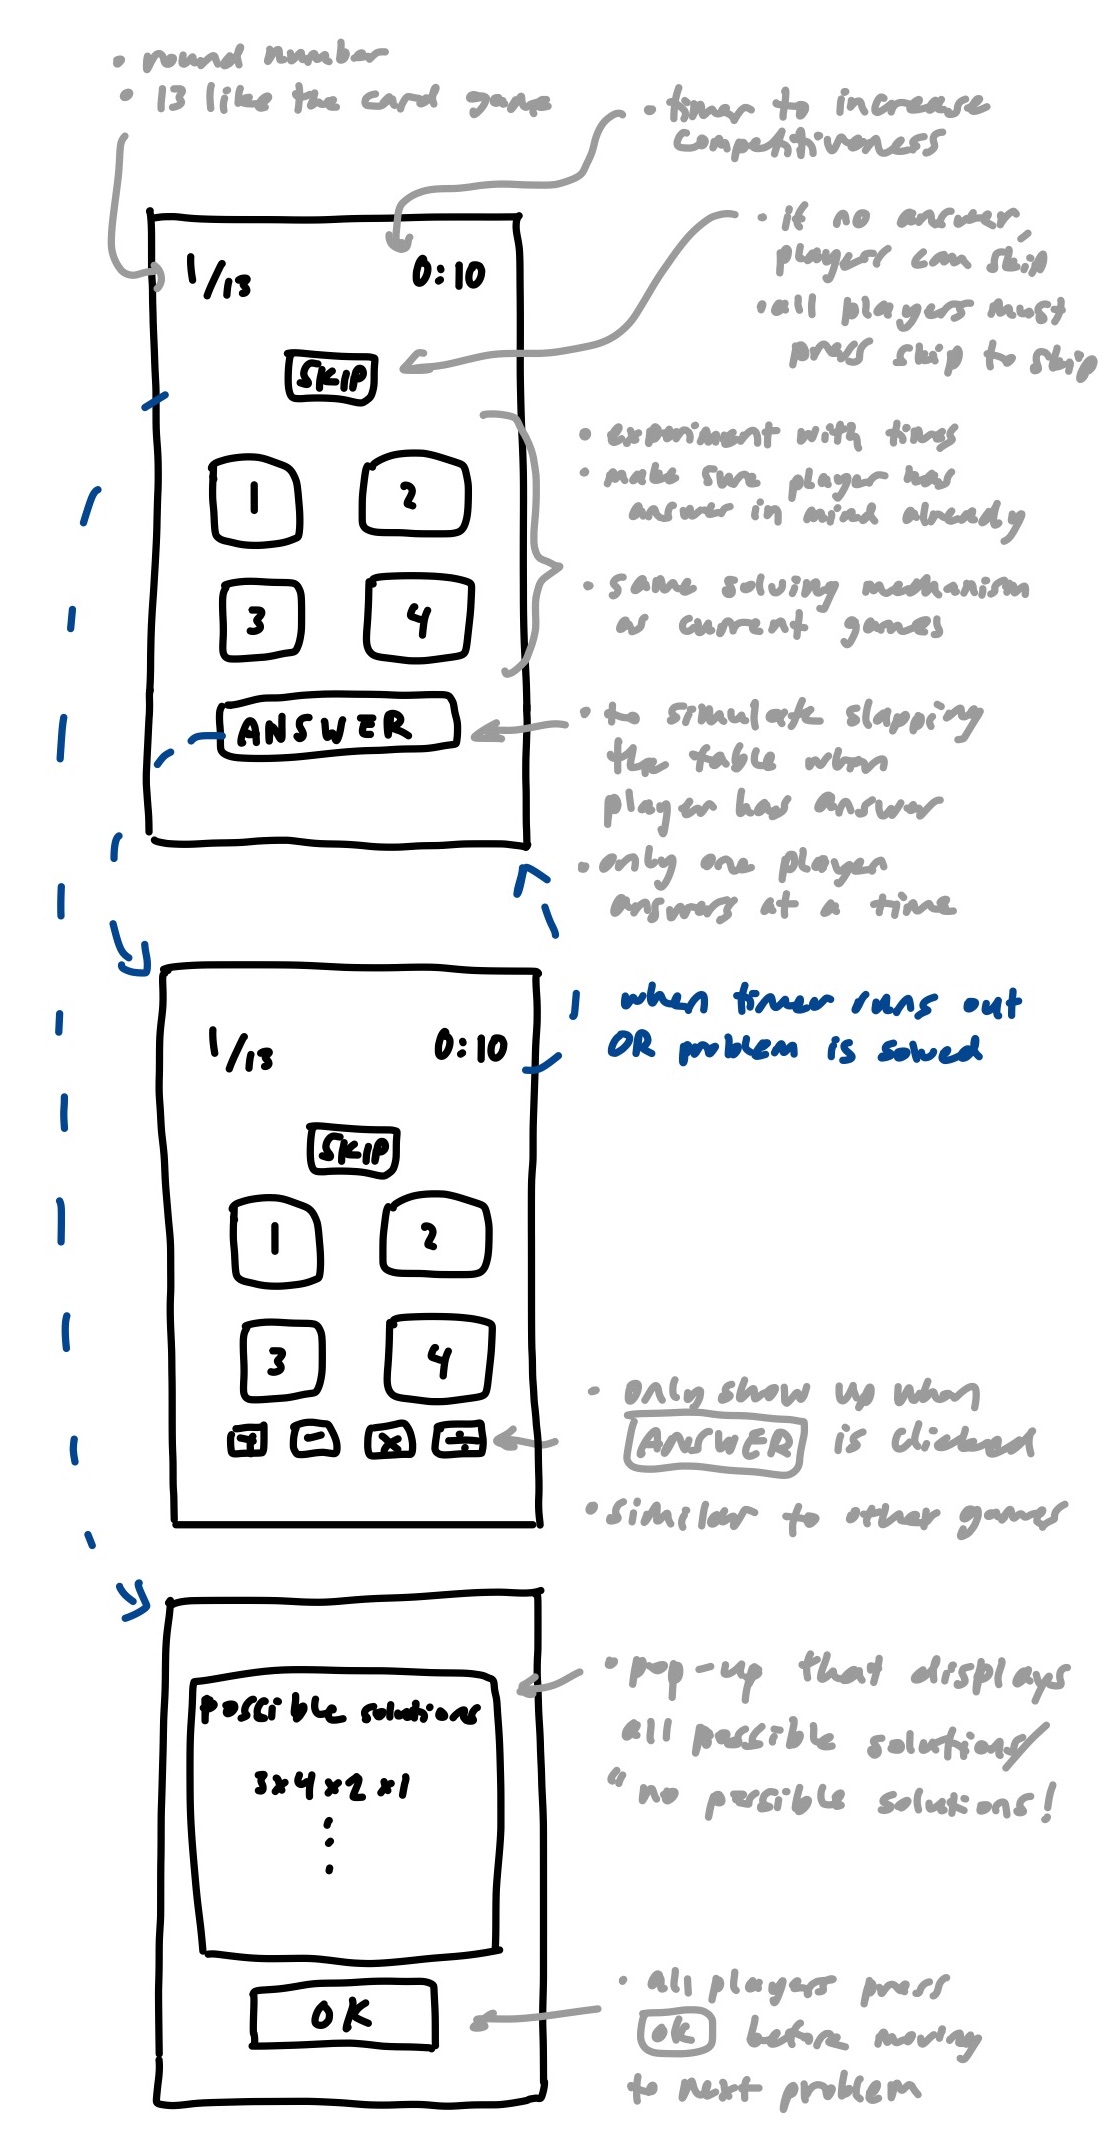 • round number
• 13 like the card game
• timer to increase
competitiveness
• if no answer,
players can skip
• all players must
press skip to skip
1/13
0:10
SKIP
1
2
3
4
ANSWER
• experiment with times
• make sure player has
answer in mind already
• same solving mechanism
as current games
• to simulate slapping
the table when
player has answer
• only one player
answers at a time
when timer runs out
OR problem is solved
1/13
0:10
SKIP
1
2
3
4
+ - × ÷
• only show up when
ANSWER is clicked
• similar to other games
possible solutions
3×4×2×1
⋮
OK
• pop-up that displays
all possible solutions/
"no possible solutions!
• all players press
OK before moving
to next problem